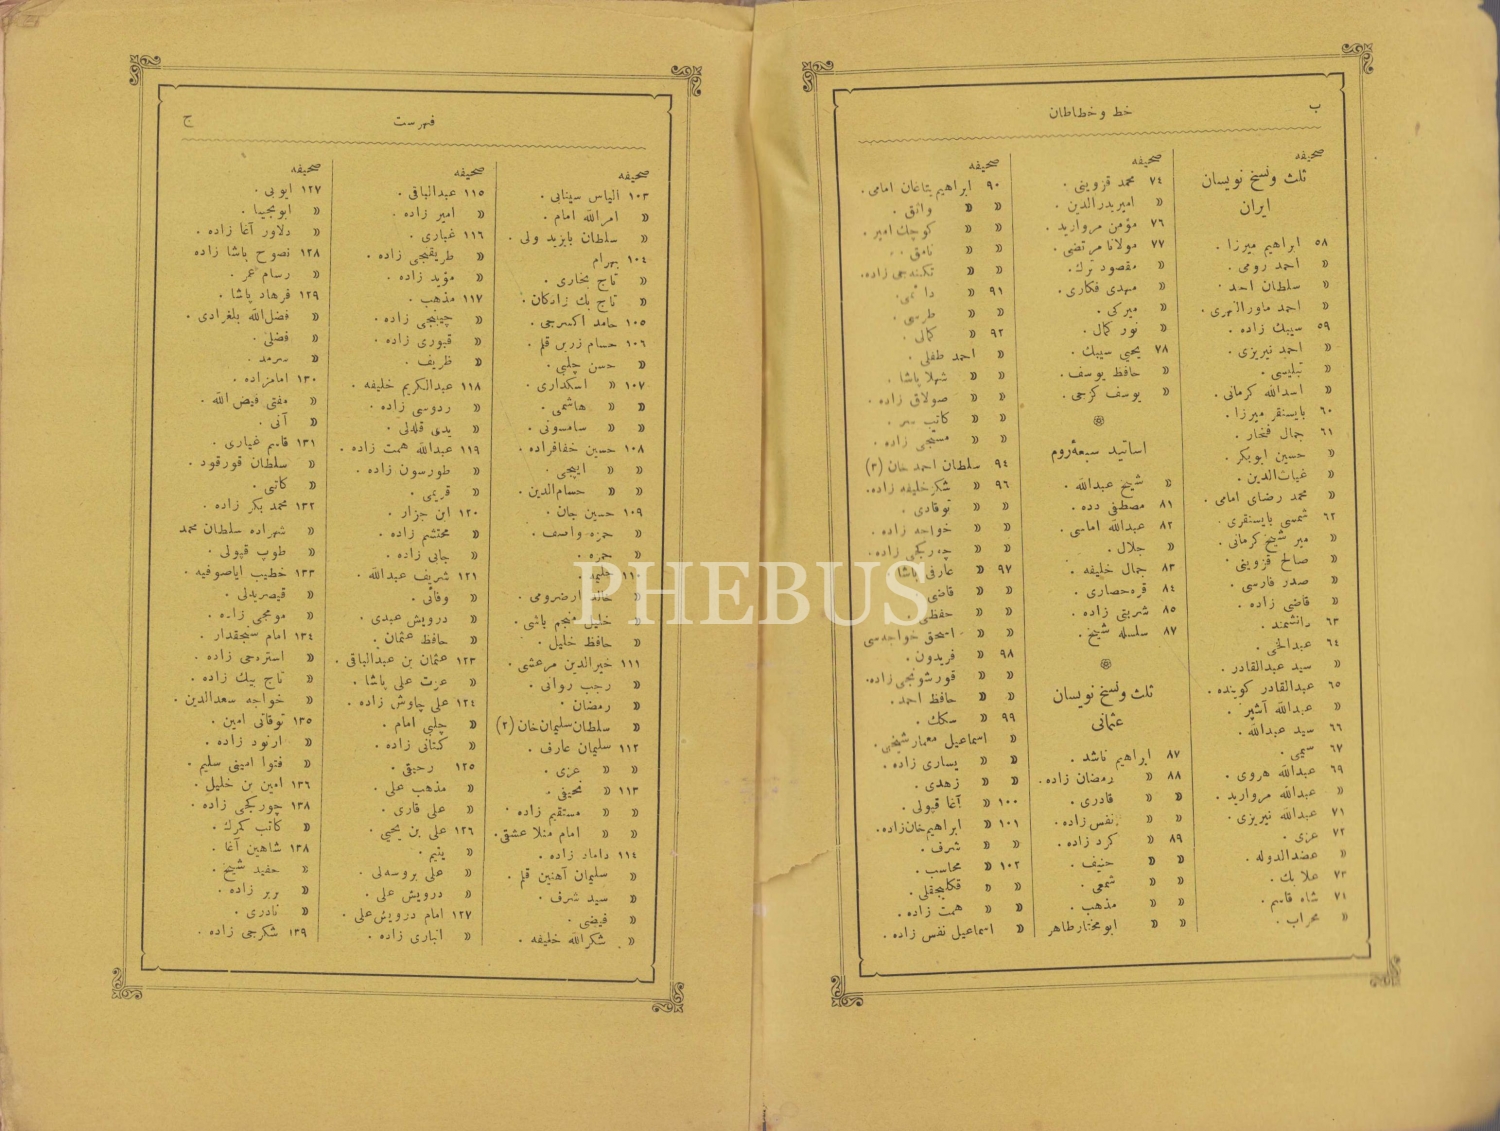 ب
خط و خطاطان
صحیفه
ثلث ونسخ نویسان
ایران
٥٨ ابراهیم میرزا .
» احمد رومی .
» سلطان احمد .
» احمد ماورالنهری .
٥٩ سیبك زاده .
» احمد نیریزی .
» تبلیسی .
» اسدالله کرمانی .
٦٠ بایسنقر میرزا .
٦١ جمال فخار .
» حسین ابوبکر .
» غیاث‌الدین .
» محمد رضای امامی .
٦٢ شمسی بایسنقری .
» میر شیخ کرمانی .
» صالح قزوینی .
» صدر فارسی .
» قاضی زاده .
٦٣ دانشمند .
٦٤ عبدالحی .
» سید عبدالقادر .
٦٥ عبدالقادر کوینده .
» عبدالله آشپز .
٦٦ سید عبدالله .
٦٧ سیمی .
٦٩ عبدالله هروی .
» عبدالله مروارید .
٧١ عبدالله نیریزی .
٧٢ عزی .
» عضدالدوله .
٧٣ علا بك .
٧٤ شاه قاسم .
» محراب .
صحیفه
٧٤ محمد قزوینی .
» امیربدرالدین .
٧٦ مؤمن مروارید .
٧٧ مولانا مرتضی .
» مقصود ترك .
» مهدی فکاری .
» میرکی .
» نور کمال .
٧٨ یحیی سیبك .
» حافظ یوسف .
» یوسف کرجی .
اساتید سبعۀ روم
» شیخ عبدالله .
٨١ مصطفی دده .
٨٢ عبدالله اماسی .
» جلال .
٨٣ جمال خلیفه .
٨٤ قره‌حصاری .
٨٥ شربتی زاده .
٨٧ سلسله شیخ .
ثلث ونسخ نویسان
عثمانی
٨٧ ابراهیم ناشد .
٨٨ » رمضان زاده .
» » قادری .
» » نفس زاده .
٨٩ » کرد زاده .
» » حنیف .
» » شمعی .
» » مذهب .
» » ابومختار طاهر
صحیفه
٩٠ ابراهیم بتاغان امامی .
» » واثق .
» » کوچك امیر .
» » نامق .
» » تکنه‌جی زاده .
٩١ » دائمی .
» » طرسی .
٩٢ » کمالی .
» احمد طفلی .
» » شهلا پاشا .
» » صولاق زاده .
» » کاتب سر .
» » مستجی زاده .
٩٤ سلطان احمد خان (٣)
٩٦ » شکر خلیفه زاده .
» » توقادی .
» » خواجه زاده .
» » چه‌رکچی زاده .
٩٧ » عارفی پاشا .
» » قاضی
» » حفظی
» » اسحق خواجه‌سی
٩٨ » فریدون .
» » قورشونجی زاده .
» » حافظ احمد .
٩٩ » سکك .
» اسماعیل معمار شیخی .
» » یساری زاده .
» » زهدی .
١٠٠ » آغا قپولی .
١٠١ » ابراهیم‌خان‌زاده .
» » شرف .
١٠٢ » محاسب .
» » قکلبجقلی .
» » همت زاده .
» اسماعیل نفس زاده .
ج
فهرست
صحیفه
١٠٣ الیاس سینابی .
» امرالله امام .
» سلطان بایزید ولی .
١٠٤ بهرام
» تاج بخاری .
» تاج بك زادکان .
١٠٥ حامد اکسرجی .
١٠٦ حسام زرین قلم .
» حسن چلبی .
١٠٧ » اسکداری .
» » هاشمی .
» » سامسونی .
١٠٨ حسین خفافزاده .
» » ایپجی .
» » حسام‌الدین .
١٠٩ حسین جان .
» حمزه واصف .
» حمزه .
١١٠ حلیمد .
» خالد ارضرومی .
» خلیل منجم باشی .
» حافظ خلیل .
١١١ خیرالدین مرعشی .
» رجب روانی .
» رمضان .
» سلطان سلیمان‌خان (٢)
١١٢ سلیمان عارف .
» » عزی .
١١٣ » نحیفی .
» » مستقیم زاده .
» » امام منلا عشقی .
١١٤ داماد زاده .
» سلیمان آهنین قلم .
» سید شرف .
» فیضی .
» شکرالله خلیفه .
صحیفه
١١٥ عبدالباقی .
» امیر زاده .
١١٦ غباری .
» طریقتجی زاده .
» مؤید زاده .
١١٧ مذهب .
» چیجی زاده .
» قبوری زاده .
» ظریف .
١١٨ عبدالکریم خلیفه .
» ردوسی زاده .
» یدی قله‌لی .
١١٩ عبدالله همت زاده .
» طورسون زاده .
» قریمی .
١٢٠ ابن جزار .
» محتشم زاده .
» جابی زاده .
١٢١ شریف عبدالله .
» وفائی .
» درویش عبدی .
» حافظ عثمان .
١٢٣ عثمان بن عبدالباقی .
» عزت علی پاشا .
١٢٤ علی چاوش زاده .
» چلبی امام .
» کتانی زاده .
١٢٥ رحیقی .
» مذهب علی .
» علی قاری .
١٢٦ علی بن یحیی .
» یتیم .
» علی بروسه‌لی .
» درویش علی .
١٢٧ امام درویش علی .
» انباری زاده .
صحیفه
١٢٧ ایوبی .
» ابویحییا .
» دلاور آغا زاده .
١٢٨ نصوح پاشا زاده
» رسام عمر .
١٢٩ فرهاد پاشا .
» فضل‌الله بلغرادی .
» فضلی .
» سرمد .
١٣٠ امامزاده .
» مفتی فیض الله .
» آنی .
١٣١ قاسم غباری .
» سلطان قورقود .
» کاتبی .
١٣٢ محمد بکر زاده .
» شهزاده سلطان محمد
» طوپ قپولی .
١٣٣ خطیب ایاصوفیه .
» قیصریه‌لی .
» مومجی زاده .
١٣٤ امام سنجقدار .
» استره‌جی زاده .
» تاج بیك زاده .
» خواجه سعدالدین .
١٣٥ توقاتی امین .
» ارنود زاده .
» فتوا امینی سلیم .
١٣٦ امین بن خلیل .
١٣٨ چورکجی زاده .
» کاتب کمرك .
١٣٨ شاهین آغا .
» حفید شیخ .
» بربر زاده .
» نادری .
١٣٩ شکرجی زاده .
PHEBUS